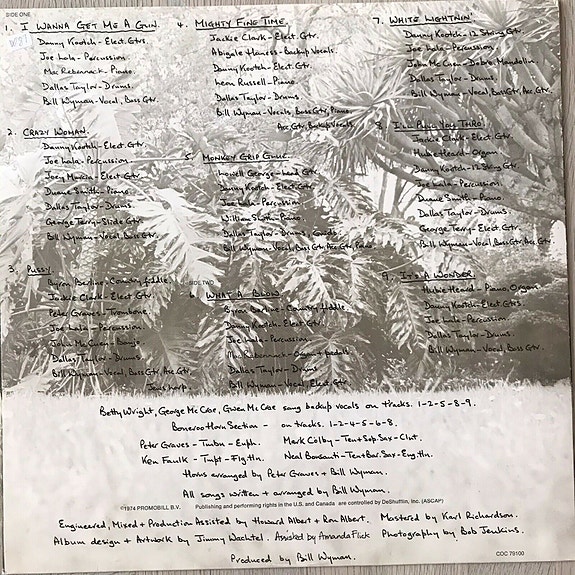 SIDE ONE
1. I WANNA GET ME A GUN.
Danny Kootch - Elect. Gtrs.
Joe Lala - Percussion.
Mac Rebennack - Piano.
Dallas Taylor - Drums.
Bill Wyman - Vocal, Bass Gtr.
2. CRAZY WOMAN.
Danny Kootch - Elect. Gtr.
Joe Lala - Percussion.
Joey Murcia - Elect. Gtr.
Duane Smith - Piano.
Dallas Taylor - Drums.
George Terry - Slide Gtr.
Bill Wyman - Vocal, Bass Gtr.
3. PUSSY.
Byron Berline - Country fiddle.
Jackie Clark - Elect. Gtr.
Peter Graves - Trombone.
Joe Lala - Percussion.
John McEuen - Banjo.
Dallas Taylor - Drums.
Bill Wyman - Vocal, Bass Gtr, Acc Gtr,
Jews harp.
4. MIGHTY FINE TIME.
Jackie Clark - Elect. Gtr.
Abigale Haness - Backup Vocals.
Danny Kootch - Elect. Gtr.
Leon Russell - Piano.
Dallas Taylor - Drums.
Bill Wyman - Vocals, Bass Gtr, Piano,
Acc Gtr, Backup Vocals.
5. MONKEY GRIP GLUE.
Lowell George - Lead Gtr.
Danny Kootch - Elect. Gtr.
Joe Lala - Percussion
William Smith - Piano.
Dallas Taylor - Drums,
Bill Wyman - Vocal, Bass Gtr, Acc Gtr, Piano
SIDE TWO
6. WHAT A BLOW.
Byron Berline - Country fiddle.
Danny Kootch - Elect. Gtr.
Joe Lala - Percussion.
Mac Rebennack - Organ + pedals.
Dallas Taylor - Drums
Bill Wyman - Vocal, Elect Gtr.
7. WHITE LIGHTNIN'.
Danny Kootch - 12 String Gtr.
Joe Lala - Percussion.
John McEuen - Dobro, Mandolin.
Dallas Taylor - Drums,
Bill Wyman - Vocal, Bass Gtr, Acc Gtr.
8. I'LL PULL YOU THRO'
Jackie Clark - Elect. Gtr.
Hubie Heard - Organ
Danny Kootch - 12 String Gtr
Joe Lala - Percussion.
Duane Smith - Piano.
Dallas Taylor - Drums
George Terry - Elect. Gtr.
Bill Wyman - Vocal, Bass Gtr, Acc Gtr.
9. IT'S A WONDER.
Hubie Heard - Piano, Organ
Danny Kootch - Elect. Gtrs.
Joe Lala - Percussion.
Dallas Taylor - Drums.
Bill Wyman - Vocal, Bass Gtr.
Betty Wright, George McCrae, Gwen McCrae sang backup vocals on tracks. 1-2-5-8-9.
Bonaroo Horn Section - on tracks. 1-2-4-5-6-8.
Peter Graves - Tmbn - Euph. Mark Colby - Ten + Sop. Sax - Clnt.
Ken Faulk - Tmpt - Flg. Hn. Neal Bonsanti - Ten + Bar. Sax - Eng. Hn.
Horns arranged by Peter Graves + Bill Wyman.
All songs written + arranged by Bill Wyman.
©1974 PROMOBILL B.V. Publishing and performing rights in the U.S. and Canada are controlled by DeShufflin, Inc. (ASCAP)
Engineered, Mixed + Production Assisted by Howard Albert + Ron Albert. Mastered by Karl Richardson.
Album design + Artwork by Jimmy Wachtel. Assisted by Amanda Flick Photography by Bob Jenkins.
Produced by Bill Wyman.
COC 79100